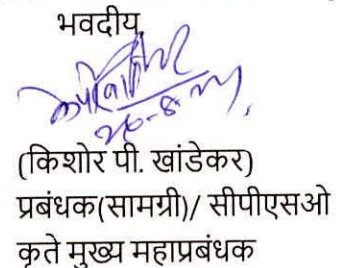 भवदीय,
(किशोर पी. खांडेकर)
प्रबंधक(सामग्री)/ सीपीएसओ
कृते मुख्य महाप्रबंधक